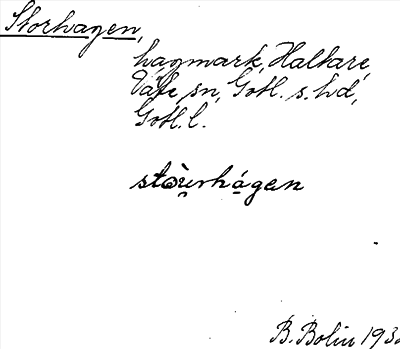 Storhagen,
hagmark, Hallvare,
Väte sn, Gotl. s. hd,
Gotl. l.
stòu̯rhágen
B. Bolin 193